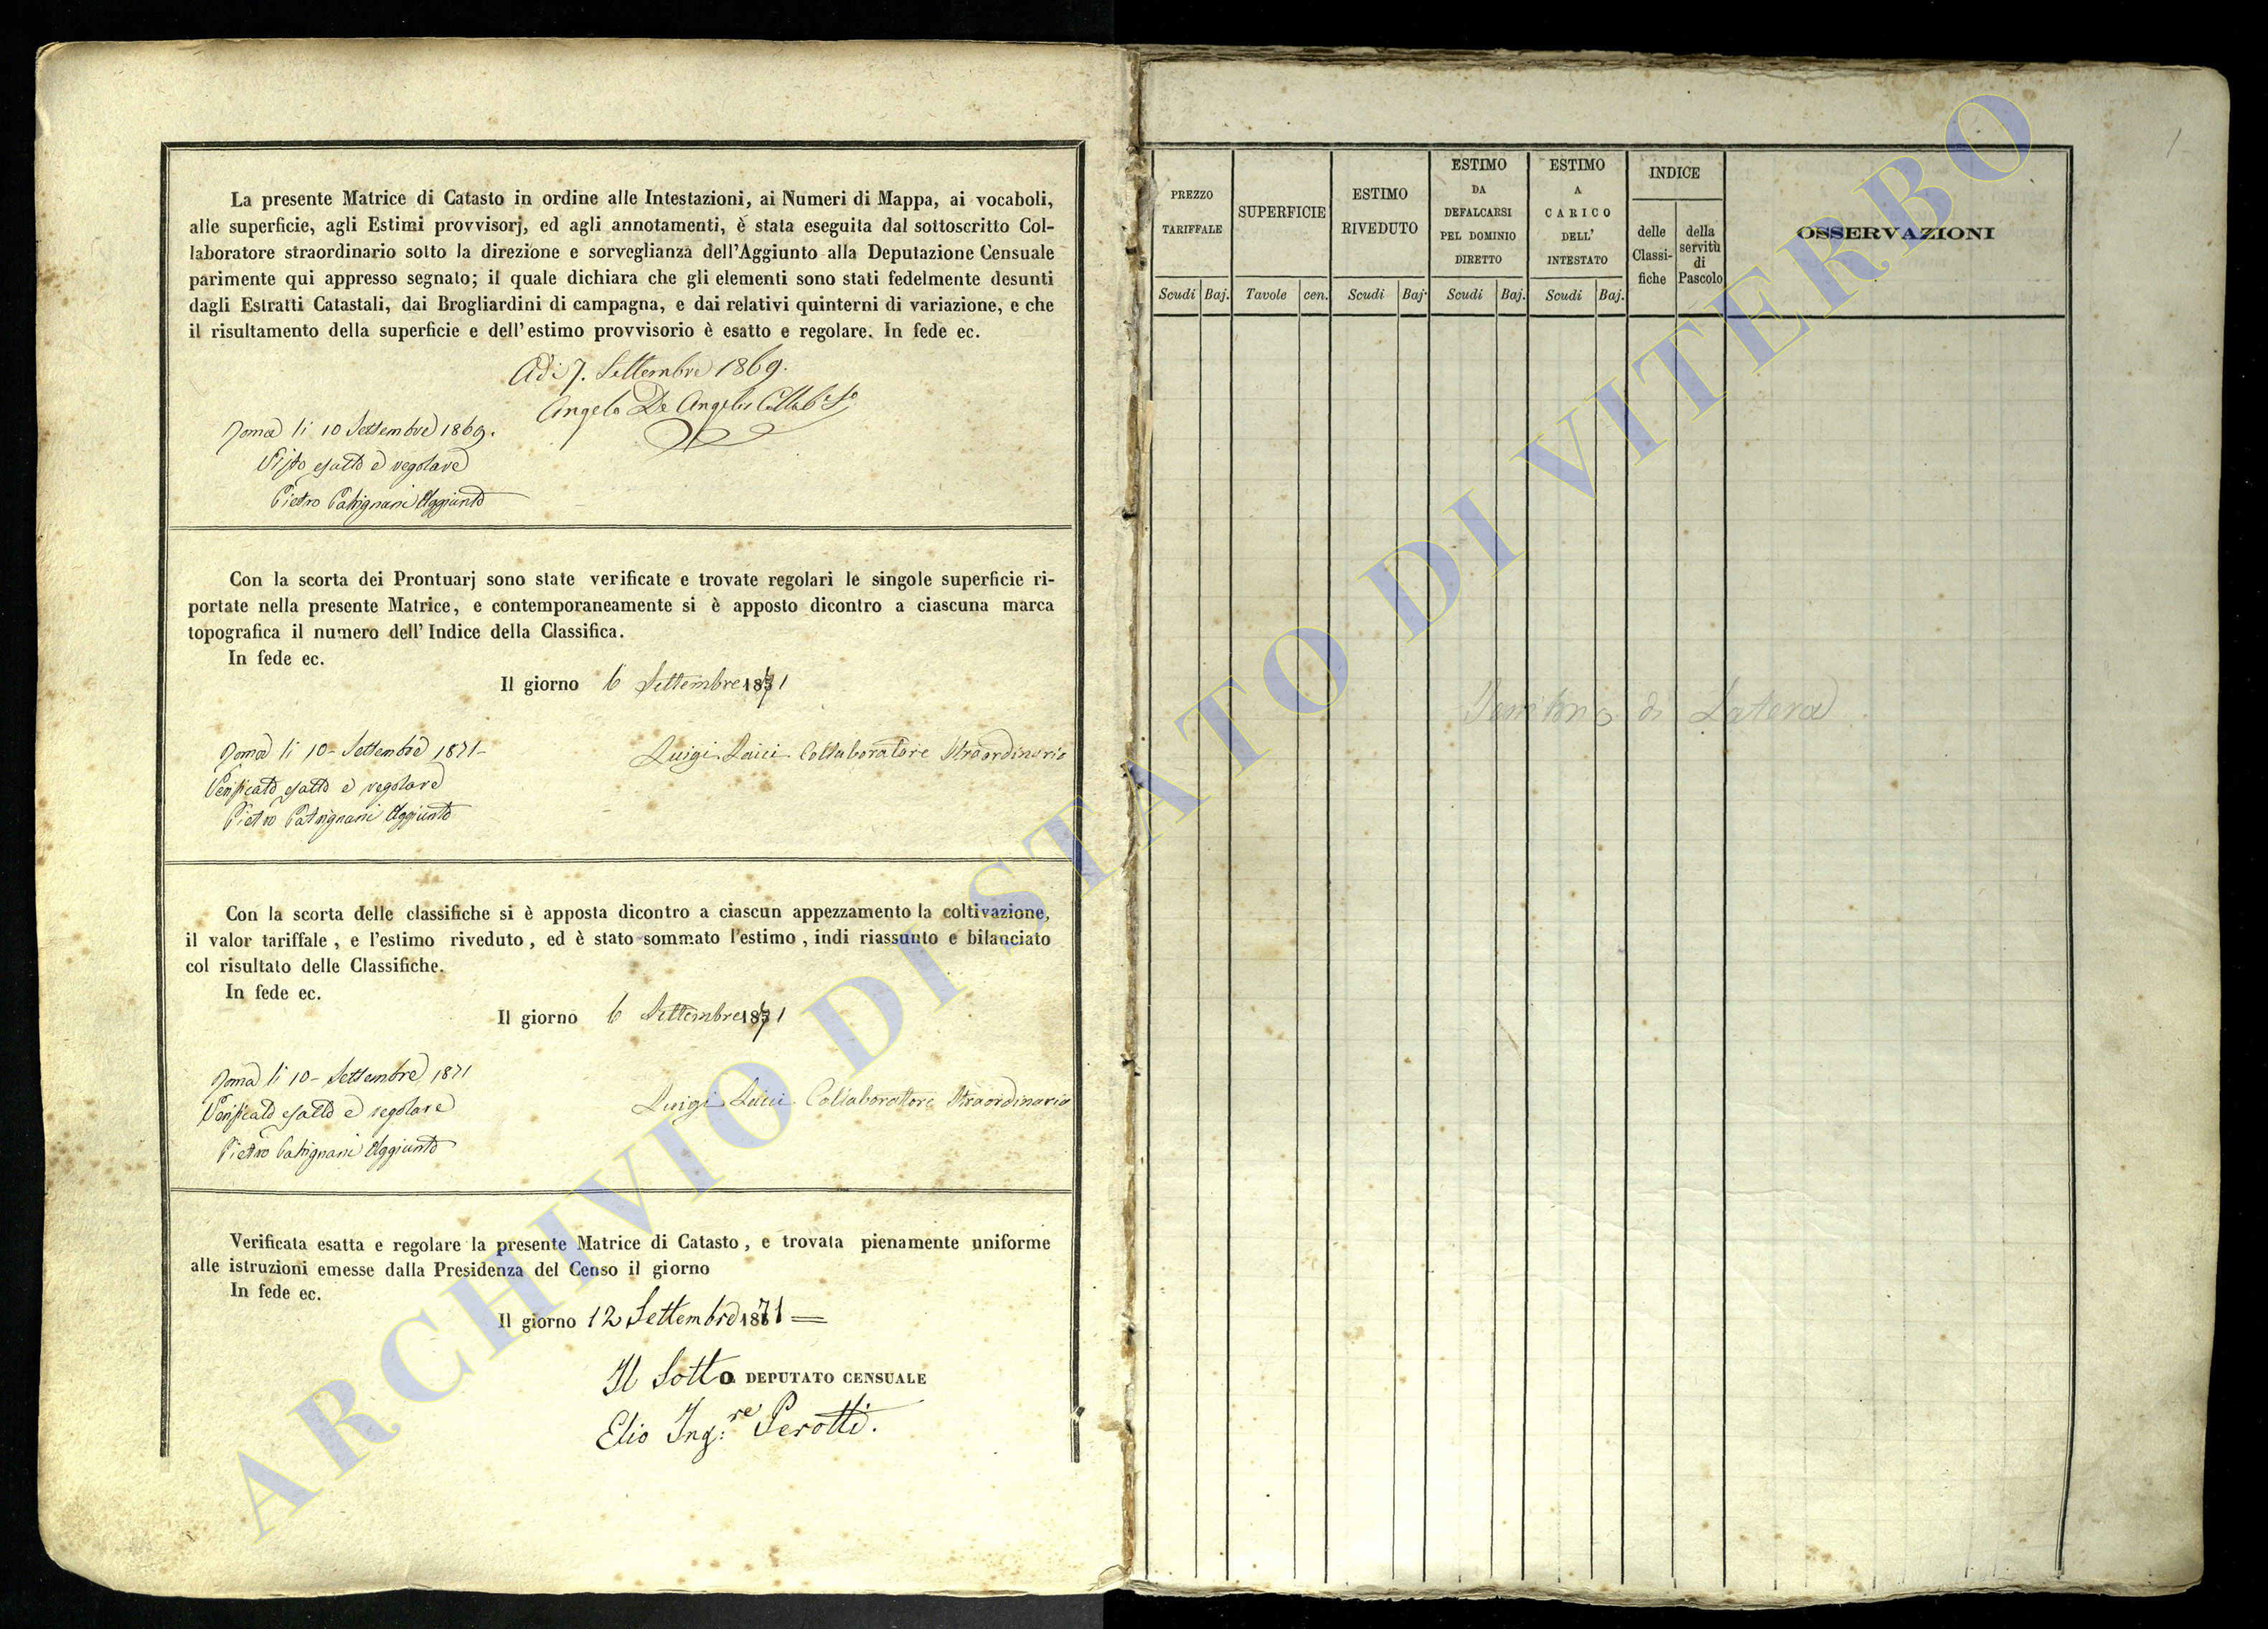 La presente Matrice di Catasto in ordine alle Intestazioni, ai Numeri di Mappa, ai vocaboli,
alle superficie, agli Estimi provvisorj, ed agli annotamenti, è stata eseguita dal sottoscritto Col-
laboratore straordinario sotto la direzione e sorveglianza dell'Aggiunto alla Deputazione Censuale
parimente qui appresso segnato; il quale dichiara che gli elementi sono stati fedelmente desunti
dagli Estratti Catastali, dai Brogliardini di campagna, e dai relativi quinterni di variazione, e che
il risultamento della superficie e dell'estimo provvisorio è esatto e regolare. In fede ec.
Adi 7. Settembre 1869.
Angelo De Angelis
Roma li 10 Settembre 1869.
Visto esatto e regolare
Pietro Patrignani Aggiunto
Con la scorta dei Prontuarj sono state verificate e trovate regolari le singole superficie ri-
portate nella presente Matrice, e contemporaneamente si è apposto dicontro a ciascuna marca
topografica il numero dell'Indice della Classifica.
In fede ec.
Il giorno 6 Settembre 1871
Roma li 10 - Settembre 1871 -
Luigi Collaboratore Straordinario
Verificato esatto e regolare
Pietro Patrignani Aggiunto
Con la scorta delle classifiche si è apposta dicontro a ciascun appezzamento la coltivazione,
il valor tariffale, e l'estimo riveduto, ed è stato sommato l'estimo, indi riassunto e bilanciato
col risultato delle Classifiche.
In fede ec.
Il giorno 6 Settembre 1871
Roma li 10 - Settembre 1871
Luigi Collaboratore Straordinario
Verificato esatto e regolare
Pietro Patrignani Aggiunto
Verificata esatta e regolare la presente Matrice di Catasto, e trovata pienamente uniforme
alle istruzioni emesse dalla Presidenza del Censo il giorno
In fede ec.
Il giorno 12 Settembre 1871 =
Il Sotto DEPUTATO CENSUALE
Elio Ing:re Perotti.
1
PREZZO
TARIFFALE
Scudi Baj.
SUPERFICIE
Tavole cen.
ESTIMO
RIVEDUTO
Scudi Baj.
ESTIMO
DA
DEFALCARSI
PEL DOMINIO
DIRETTO
Scudi Baj.
ESTIMO
A
CARICO
DELL'
INTESTATO
Scudi Baj.
INDICE
delle
Classi-
fiche
della
servitù
di
Pascolo
OSSERVAZIONI
di Latera
ARCHIVIO DI STATO DI VITERBO